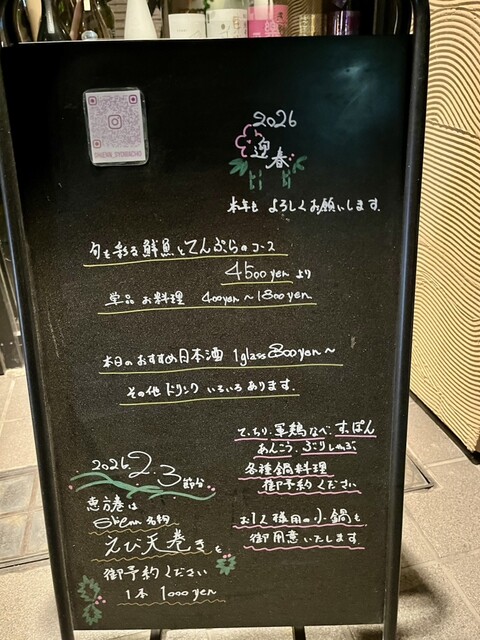 2026
迎春
本年も よろしくお願いします。
旬を彩る鮮魚とてんぷらのコース
4500yenより
単品お料理 400yen〜1800yen
本日のおすすめ日本酒 1glass 800yen〜
その他ドリンクいろいろあります。
てっちり、軍鶏なべ、すっぽん
あんこう、ぶりしゃぶ
各種鍋料理
御予約ください
お1人様用の小鍋も
御用意いたします
2026. 2. 3 節分
恵方巻は
名物
えび天巻きを
御予約ください
1本 1000yen